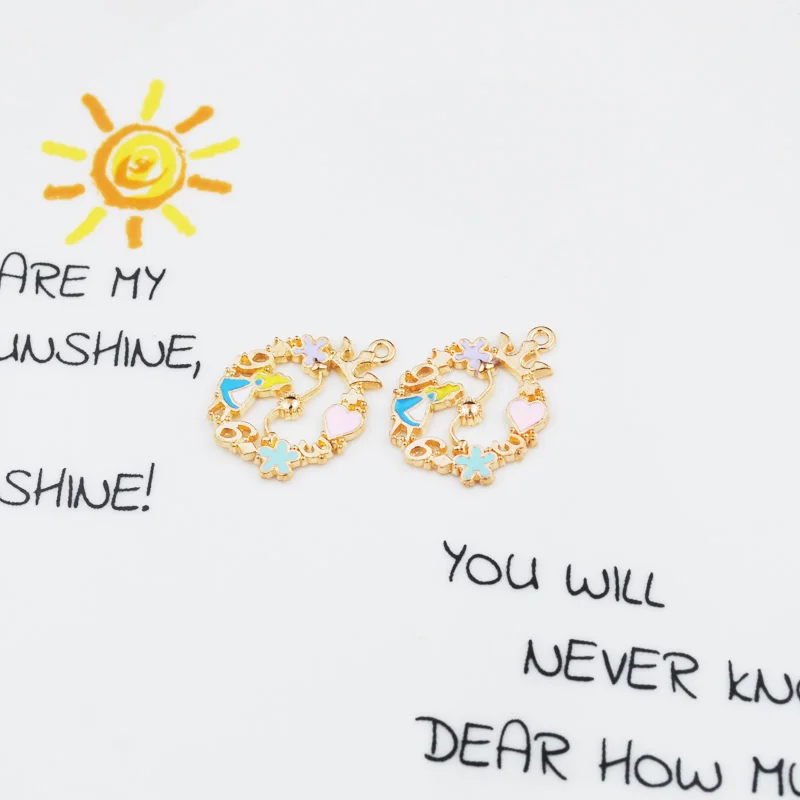 ARE MY
UNSHINE,
SHINE!
9
6
3
9
6
3
YOU WILL
NEVER KNO
DEAR HOW MU